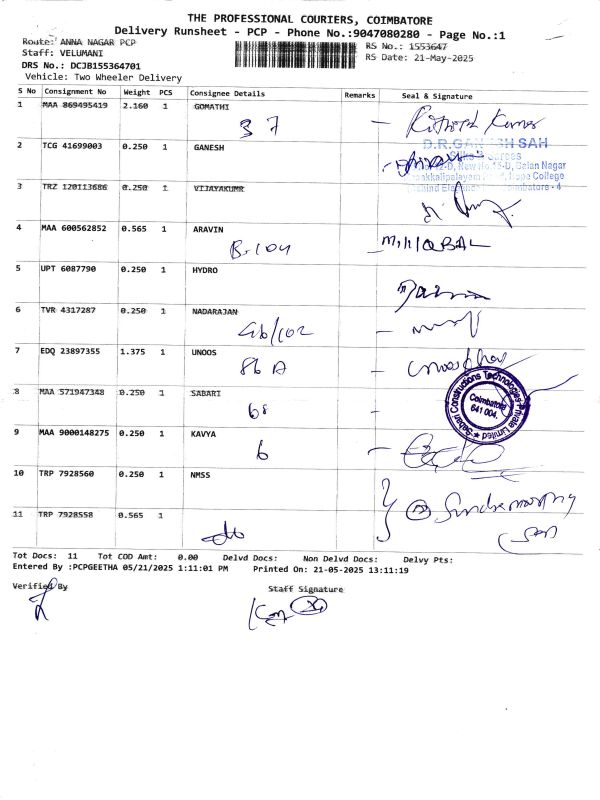 THE PROFESSIONAL COURIERS, COIMBATORE
Delivery Runsheet - PCP - Phone No.:9047080280 - Page No.:1
Route: ANNA NAGAR PCP
RS No.: 1553647
Staff: VELUMANI
RS Date: 21-May-2025
DRS No.: DCJB155364701
Vehicle: Two Wheeler Delivery
S No Consignment No Weight PCS Consignee Details Remarks Seal & Signature
1 MAA 869495419 2.160 1 GOMATHI
37 - Rithesh Kumar
2 TCG 41699003 0.250 1 GANESH
D.R.GANESH SAH
3 TRZ 120113686 0.250 1 VIJAYAKUMR
4 MAA 600562852 0.565 1 ARAVIN
B-104
5 UPT 6087790 0.250 1 HYDRO
6 TVR 4317287 0.250 1 NADARAJAN
7 EDQ 23897355 1.375 1 UNOOS
86 A
8 MAA 571947348 0.250 1 SABARI
68 -
Sabari Constructions Technologies Private Limited
Coimbatore
641 004.
9 MAA 9000148275 0.250 1 KAVYA
6 -
10 TRP 7928560 0.250 1 NMSS
11 TRP 7928558 0.565 1
Tot Docs: 11 Tot COD Amt: 0.00 Delvd Docs: Non Delvd Docs: Delvy Pts:
Entered By :PCPGEETHA 05/21/2025 1:11:01 PM Printed On: 21-05-2025 13:11:19
Verified By Staff Signature